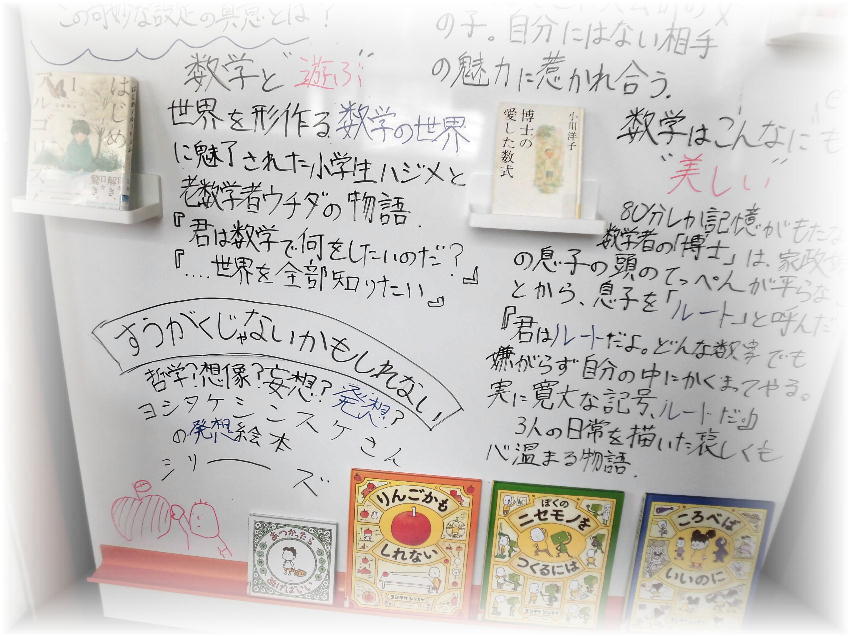 この奇妙な設定の真意とは?
の子。自分にはない相手
の魅力に惹かれ合う.
数学と"遊ぶ"
世界を形作る数学の世界
に魅了された小学生ハジメと
老数学者ウチダの物語.
『君は数学で何をしたいのだ?』
『....世界を全部知りたい』
はじめ
アルゴ
1
小川洋子
博士の
愛した数式
数学はこんなにも
"美しい"
80分しか記憶がもたな
数学者の「博士」は、家政
の息子の頭のてっぺんが平らな
とから、息子を「ルート」と呼んだ
『君はルートだよ。どんな数字でも
嫌がらず自分の中にかくまってやる。
実に寛大な記号、ルートだ』
3人の日常を描いた哀しくも
心温まる物語.
すうがくじゃないかもしれない
哲学?想像?妄想?発想?
ヨシタケシンスケさん
の発想絵本
シリーズ
あつかったら
ぬげばいい
りんごかも
しれない
ヨシタケシンスケ
ぼくの
ニセモノを
つくるには
ヨシタケシンスケ
ころべば
いいのに